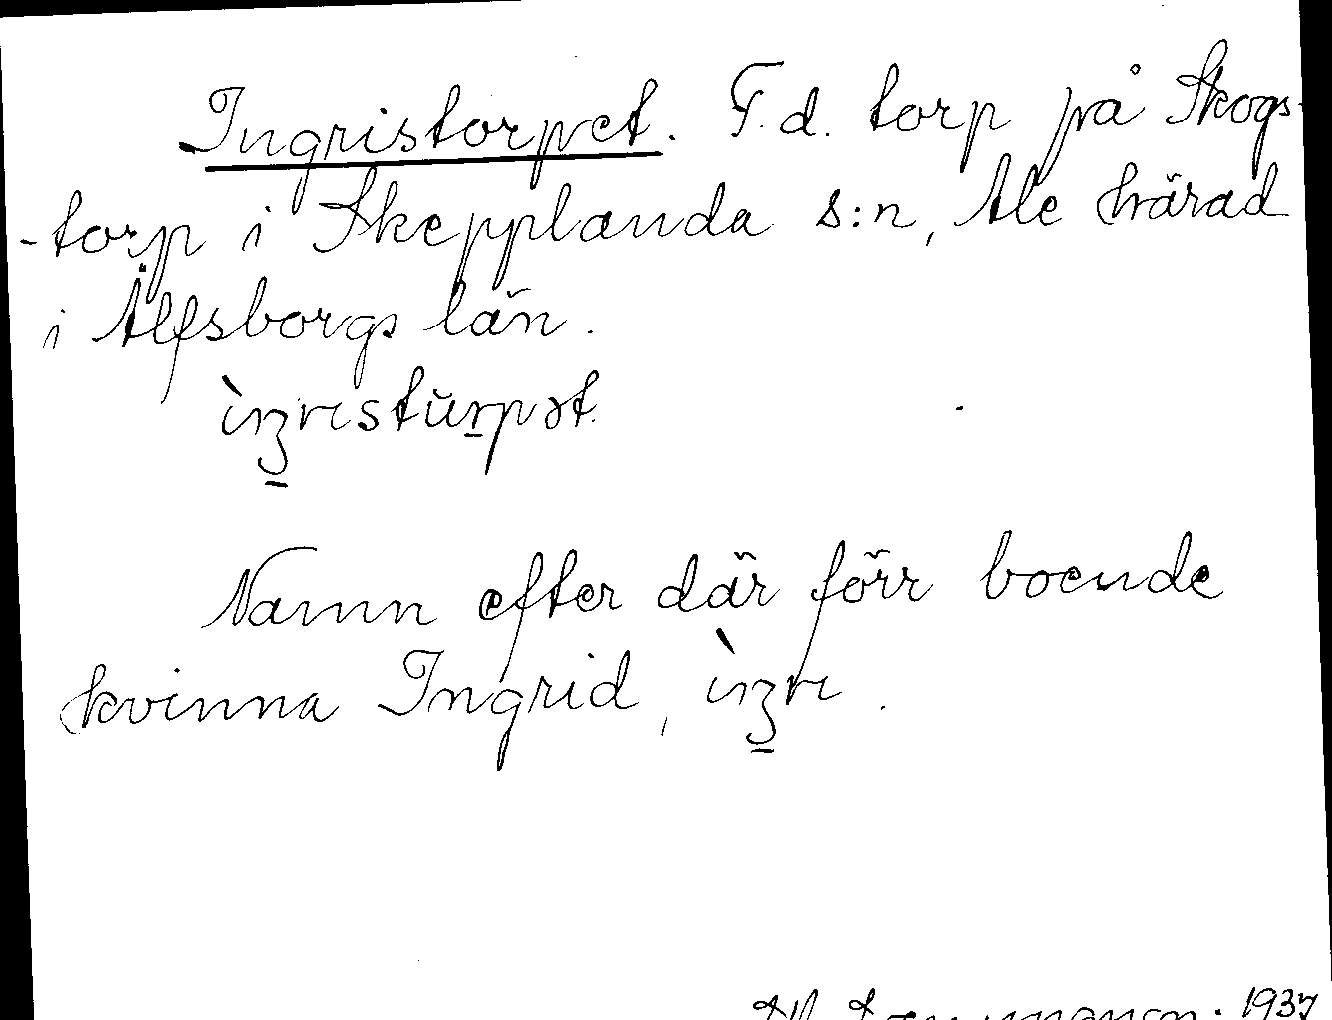 Ingristorpet. F.d. torp på Skogs-
-torp i Skepplanda s:n, Ale härad
i Älfsborgs län.
Namn efter där förr boende
kvinna Ingrid,
1937